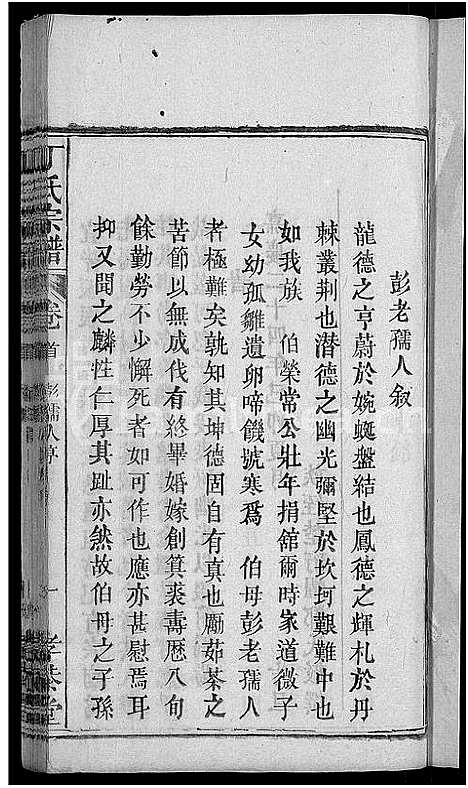 彭老孺人叙
龍德之亨蔚於婉蜒盤結也鳳德之輝札於丹
棘叢荆也潜德之幽光彌堅於坎坷艱難中也
如我族　伯榮常公壯年捐舘爾時家道微子
女幼孤雛遺卵啼饑號寒爲　伯母彭老孺人
者極難矣孰知其坤德固自有真也勵茹荼之
苦節以無成代有終畢婚嫁創箕裘壽歷八旬
餘勤勞不少懈死者如可作也應亦甚慰焉耳
抑又聞之麟性仁厚其趾亦然故伯母之子孫
丁氏宗譜
卷首
彭孺人序
一
孝慈堂